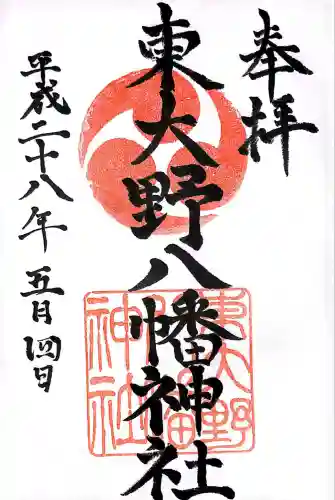 奉拝
東大野八幡神社
平成二十八年五月四日
東大野
八幡
神社